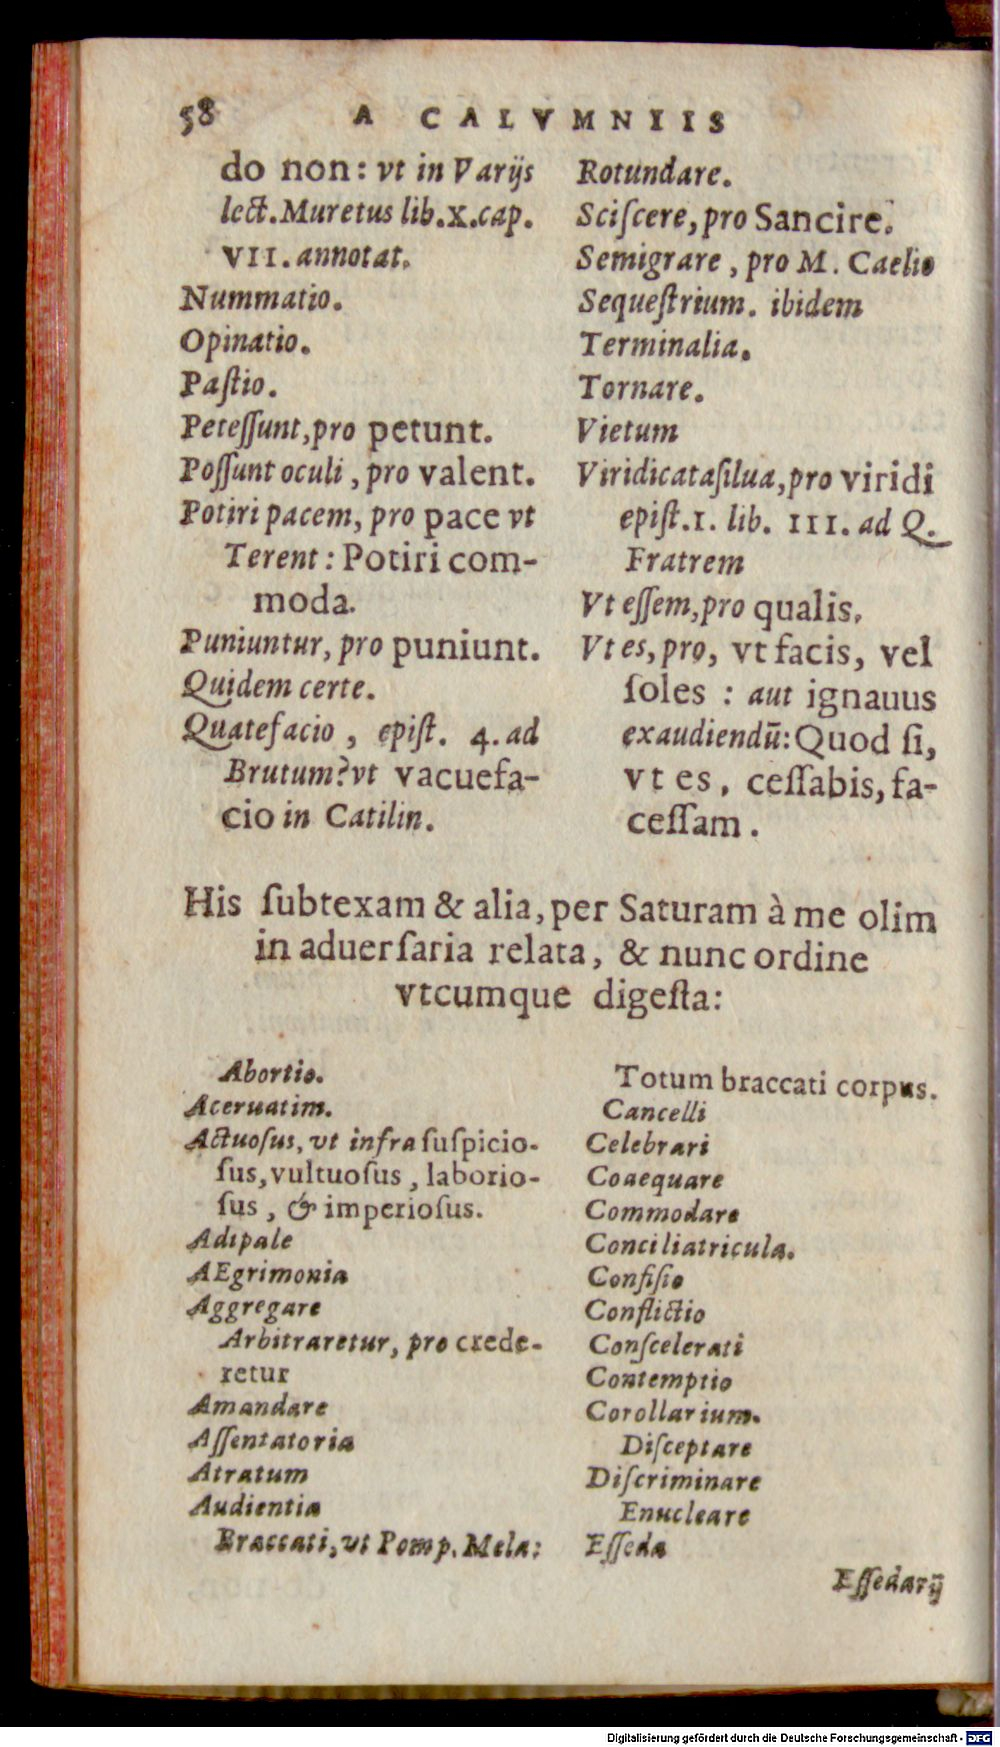 58 A CALVMNIIS
do non: vt in Varijs
lect. Muretus lib. X. cap.
VII. annotat.
Nummatio.
Opinatio.
Paſtio.
Peteſſunt, pro petunt.
Poſſunt oculi, pro valent.
Potiri pacem, pro pace vt
Terent: Potiri com-
moda.
Puniuntur, pro puniunt.
Quidem certe.
Quatefacio, epiſt. 4. ad
Brutum? vt vacuefa-
cio in Catilin.
Rotundare.
Sciſcere, pro Sancire.
Semigrare, pro M. Caelio
Sequeſtrium. ibidem
Terminalia.
Tornare.
Vietum
Viridicata ſilua, pro viridi
epiſt. I. lib. III. ad Q.
Fratrem
Vt eſſem, pro qualis.
Vt es, pro, vt facis, vel
ſoles : aut ignauus
exaudiendū: Quod ſi,
vt es, ceſſabis, fa-
ceſſam.
His ſubtexam & alia, per Saturam à me olim
in aduerſaria relata, & nunc ordine
vtcumque digeſta:
Abortio.
Aceruatim.
Actuoſus, vt infra ſuſpicio-
ſus, vultuoſus, laborio-
ſus, & imperioſus.
Adipale
AEgrimonia
Aggregare
Arbitraretur, pro crede-
retur
Amandare
Aſſentatoria
Atratum
Audientia
Braccati, vt Pomp. Mela:
Totum braccati corpus.
Cancelli
Celebrari
Coaequare
Commodare
Conciliatricula.
Confiſio
Conflictio
Conſcelerati
Contemptio
Corollarium.
Diſceptare
Diſcriminare
Enucleare
Eſſeda
Eſſedarij
Digitalisierung gefördert durch die Deutsche Forschungsgemeinschaft - DFG